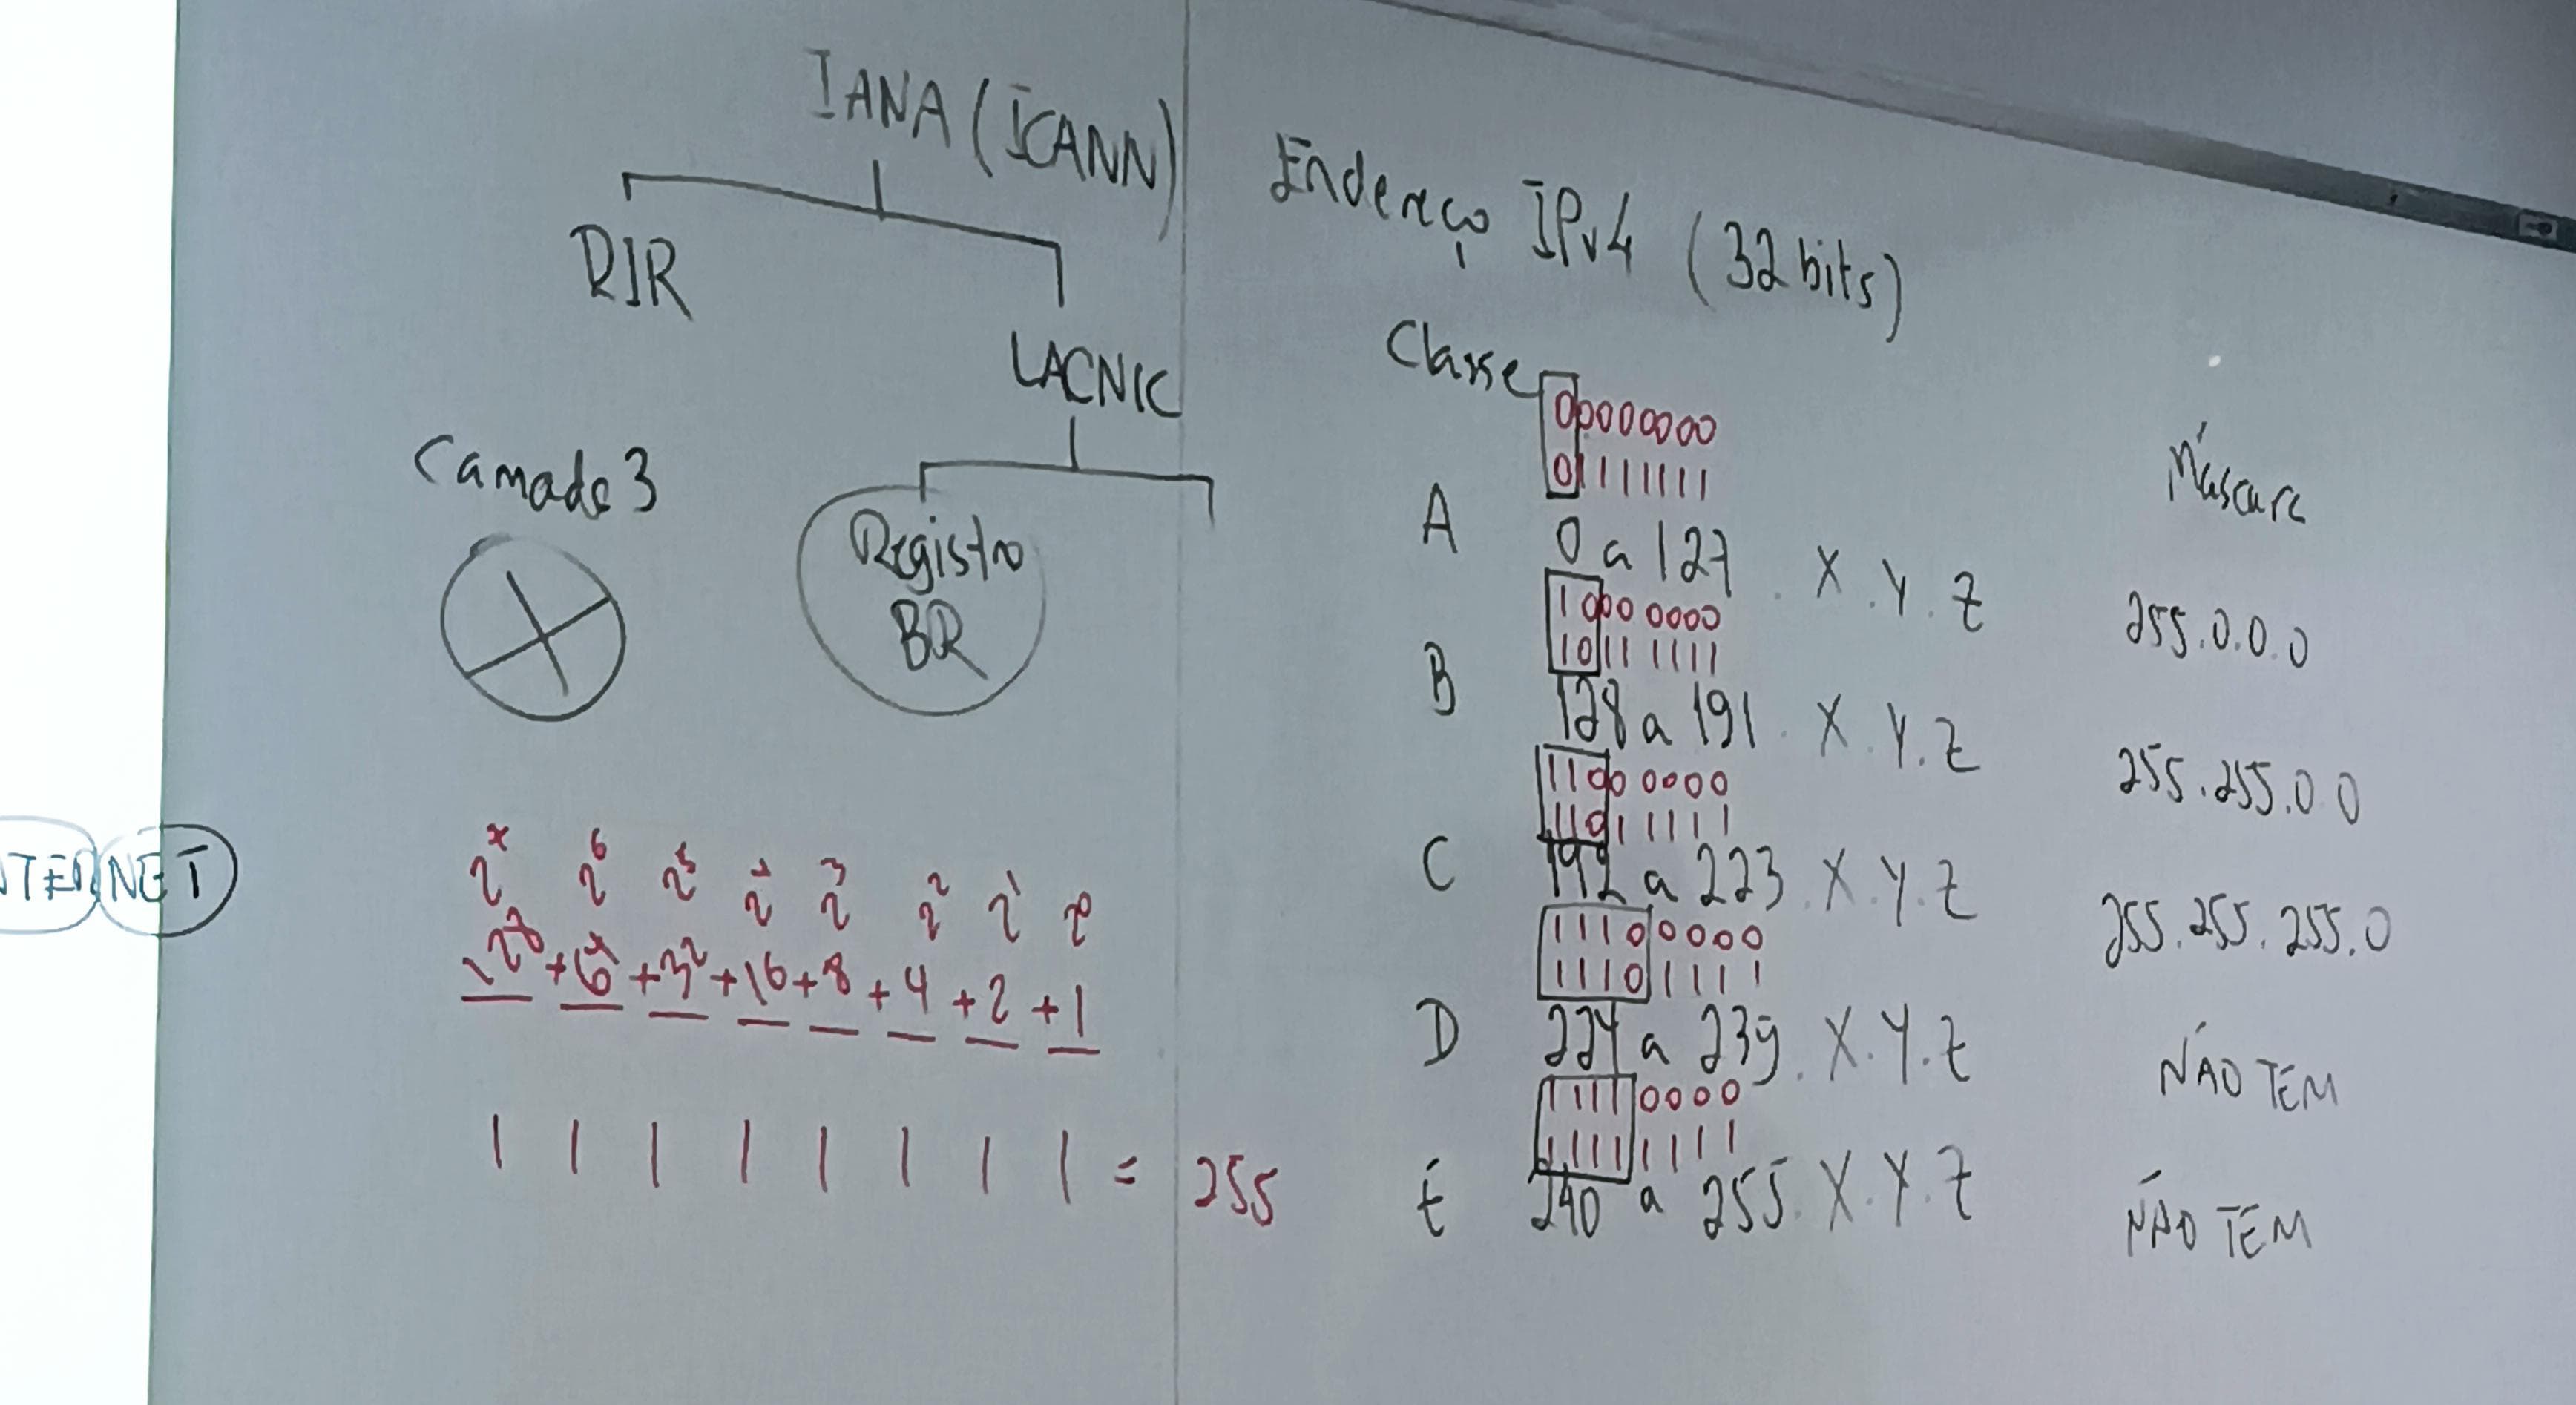 IANA (ICANN)
RIR
LACNIC
Camada 3
Registro
BR
NTER NET
2⁷ 2⁶ 2⁵ 2⁴ 2³ 2² 2¹ 2⁰
128 + 64 + 32 + 16 + 8 + 4 + 2 + 1
1 1 1 1 1 1 1 1 = 255
Endereço IPv4 (32 bits)
Classe
Máscara
00000000
01111111
A 0 a 127 . X . Y . Z 255.0.0.0
10000000
10111111
B 128 a 191 . X . Y . Z 255.255.0.0
11000000
11011111
C 192 a 223 . X . Y . Z 255.255.255.0
11100000
11101111
D 224 a 239 . X . Y . Z NÃO TEM
11110000
11111111
E 240 a 255 . X . Y . Z NÃO TEM